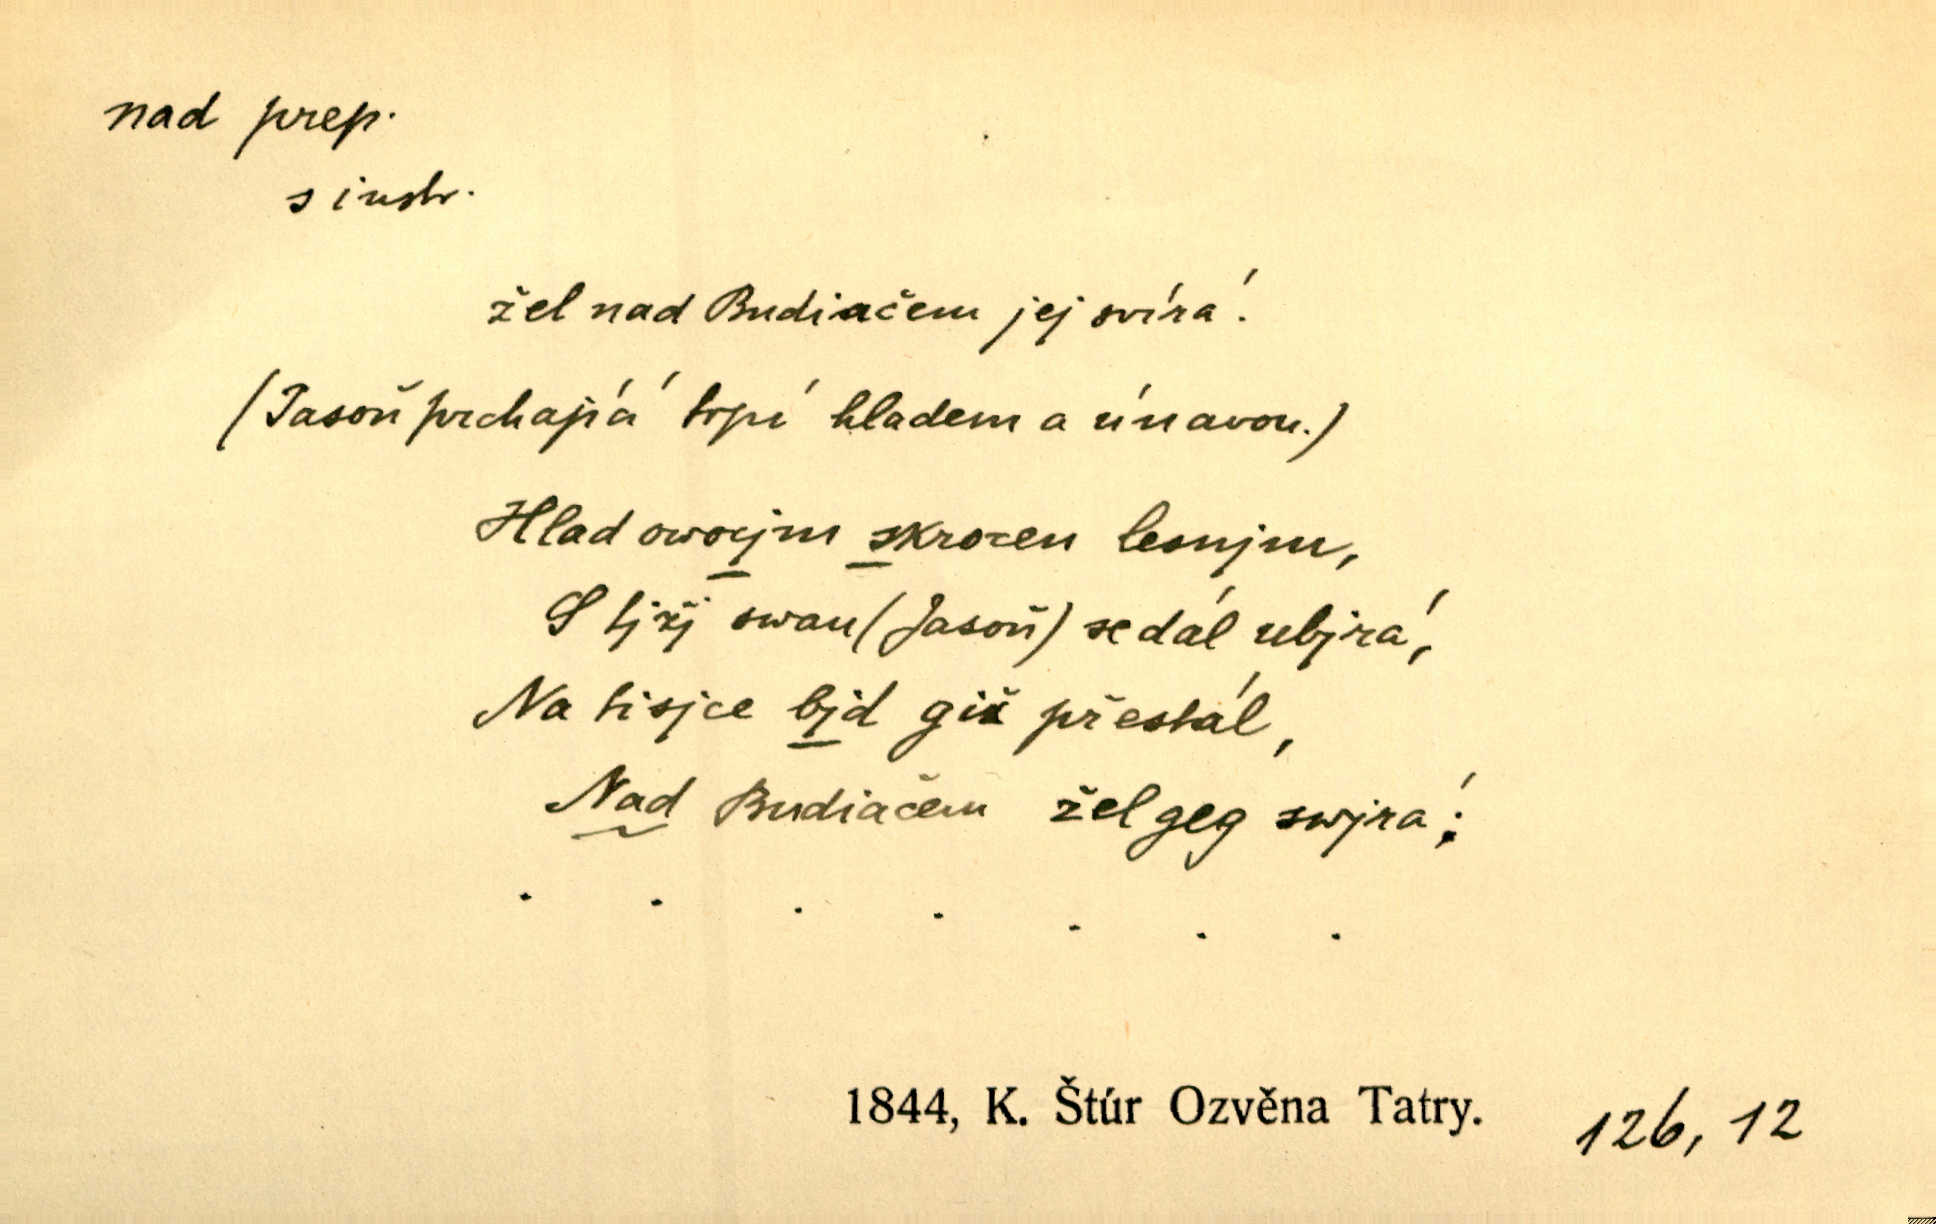 nad prep.
s instr.
žel nad Budiačem jej svírá.
(Jasoň prchající trpí hladem a únavou.)
Hlad owocjm skrocen lesnjm,
S tjžj swau (Jasoň) se dál ubjrá,
Na tisjce bjd giž přestál,
Nad Budiačem žel geg swjrá;
. . . . . . .
1844, K. Štúr Ozvěna Tatry. 126, 12